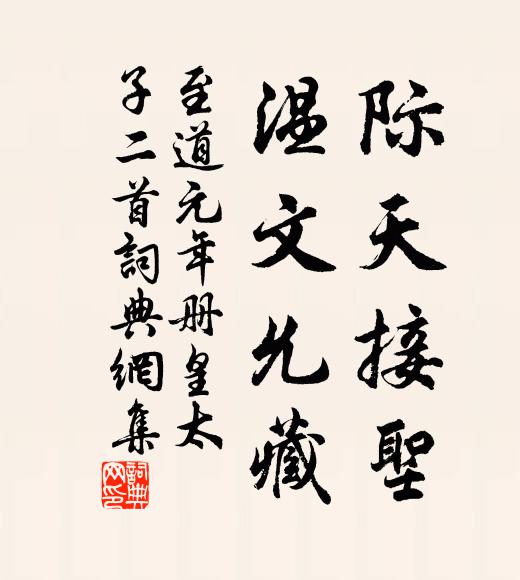 际天接聖
温文允藏
至道元年册皇太
子二首詞典網集
詞典網印